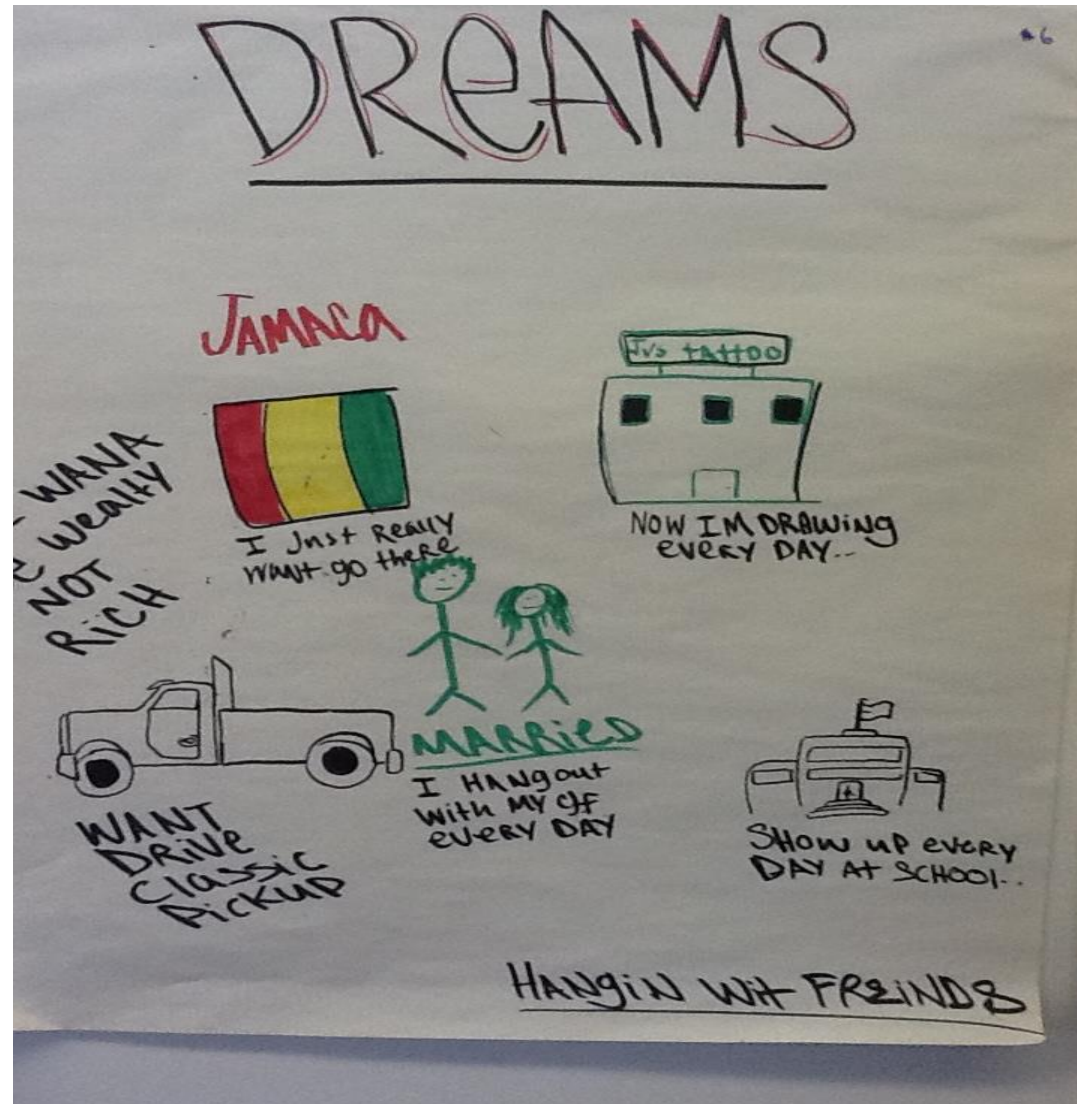 DREAMS
*6
JAMACA
I Just Really
want go there
Jv's tattoo
NOW IM DRAWING
EVERY DAY..
WANA
wealty
NOT
RICH
MARRIED
I HANG out
with MY gf
every DAY
WANT
DRIVE
Classic
Pickup
SHOW UP EVERY
DAY AT SCHOOL..
HANGIN Wit FREINDS